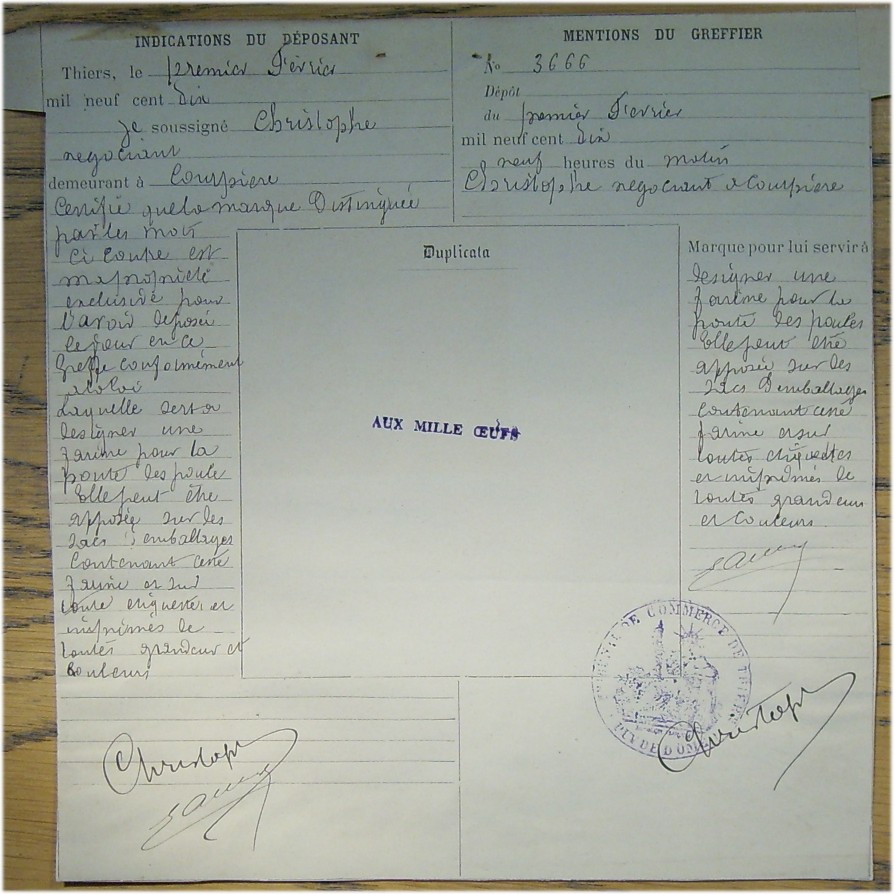 INDICATIONS DU DÉPOSANT
Thiers, le premier Février
mil neuf cent Dix
je soussigné Christophe
negociant
demeurant à Courpiere
Certifie que la marque Distinguée
par les mots
Ci Contre est
ma propriété
exclusive pour
l'avoir deposée
le jour en ce
Greffe conformément
a la loi
Laquelle sert a
designer une
farine pour la
ponte des poule
Elle peut être
apposée sur les
sacs d'emballages
Contenant cette
farine et sur
toute etiquettes et
imprimés de
toutes grandeur et
Couleurs
Christophe
MENTIONS DU GREFFIER
No 3666
Dépôt
du premier Février
mil neuf cent dix
a neuf heures du matin
Christophe negociant a Courpiere
Duplicata
AUX MILLE ŒUFS
Marque pour lui servir à
designer une
farine pour la
ponte des poules
Elle peut être
apposée sur des
sacs D'emballages
Contenant cette
farine et sur
toutes etiquettes
et imprimés de
toutes grandeurs
et Couleurs
DE COMMERCE DE THIERS
PUY DE DOME
Christophe